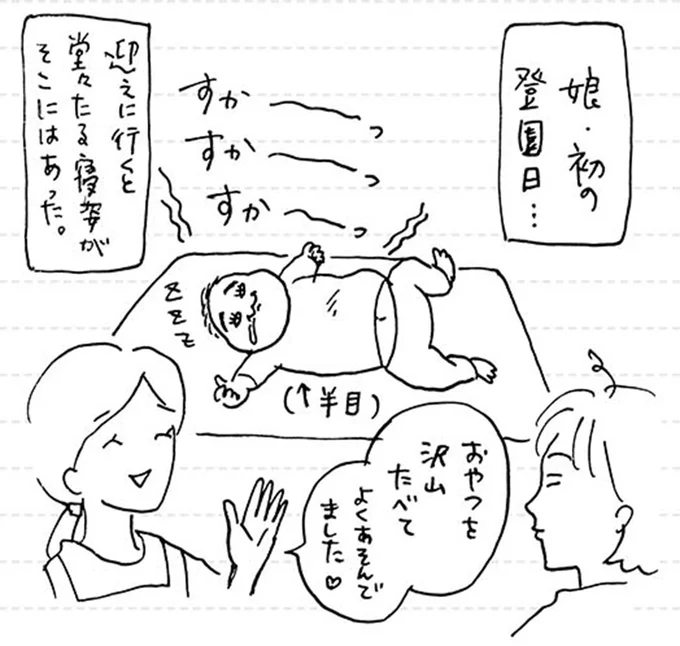 娘・初の
登園日…
すか〜っ
すか〜っ
すか〜っ
迎えに行くと
堂々たる寝姿が
そこにはあった。
zzz
(↑半目)
おやつを
沢山
たべて
よくあそんで
ました♡